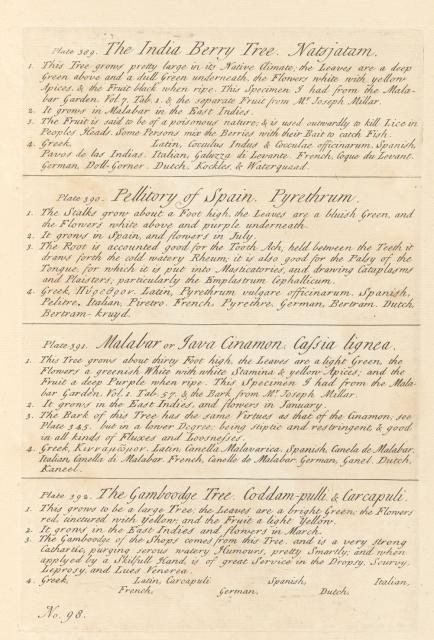 Plate 389. The India Berry Tree. Natsjatam.
1. This Tree grows pretty large in its Native Climate; the Leaves are a deep
Green above and a dull Green underneath, the Flowers white with yellow
Apices, & the Fruit black when ripe. This Specimen I had from the Mala-
bar Garden, Vol. 7. Tab. 1. & the separate Fruit from Mr. Joseph Millar.
2. It grows in Malabar in the East Indies.
3. The Fruit is said to be of a poisonous nature, & is used outwardly to kill Lice in
Peoples Heads. Some Persons mix the Berries with their Bait to catch Fish.
4. Greek, Latin, Cocculus Indus & Cocculae officinarum. Spanish,
Pavos de las Indias. Italian, Galuzza di Levante. French, Coque du Levant.
German, Doll-Corner. Dutch, Kockles, &
Plate 390. Pellitory of Spain. Pyrethrum.
1. The Stalks grow about a Foot high, the Leaves are a bluish Green, and
the Flowers white above and purple underneath.
2. It grows in Spain, and flowers in July.
3. The Root is accounted good for the Tooth Ach, held between the Teeth it
draws forth the cold watery Rheum; it is also good for the Palsy of the
Tongue, for which it is put into Masticatories, and drawing Cataplasms
and Plaisters, particularly the Emplastrum Cephallicum.
4. Greek, Πύρεθρον. Latin, Pyrethrum vulgare officinarum. Spanish,
Pelitre, Italian, Piretro. French, Pyrethre, German, Bertram. Dutch,
Bertram-kruyd.
Plate 391. Malabar or Java Cinamon. Cassia lignea.
1. This Tree grows about thirty Foot high, the Leaves are a light Green, the
Flowers a greenish White with white Stamina & yellow Apices; and the
Fruit a deep Purple when ripe. This Specimen I had from the Mala-
bar Garden, Vol. 1. Tab. 57. & the Bark from Mr. Joseph Millar.
2. It grows in the East Indies, and flowers in January.
3. The Bark of this Tree has the same Virtues as that of the Cinamon; see
Plate 345. but in a lower Degree; being stiptic and restringent, & good
in all kinds of Fluxes and Loosnesses.
4. Greek, Κινναμωμον. Latin, Canella Malavarica. Spanish, Canela de Malabar.
Italian, Canella di Malabar. French, Canelle de Malabar. German, Ganel. Dutch,
Kaneel.
Plate 392. The Gamboodge Tree. Coddam-pulli & Carcapuli.
1. This grows to be a large Tree; the Leaves are a bright Green, the Flowers
red, tinctured with Yellow; and the Fruit a light Yellow.
2. It grows in the East Indies and flowers in March.
3. The Gamboodge of the Shops comes from this Tree, and is a very strong
Cathartic, purging serous watery Humours, pretty smartly; and when
applyed by a Skilfull Hand, is of great Service in the Dropsy, Scurvy,
Leprosy, and Lues Venerea.
4. Greek, Latin, Carcapuli. Spanish, Italian,
French, German, Dutch,
No. 98.